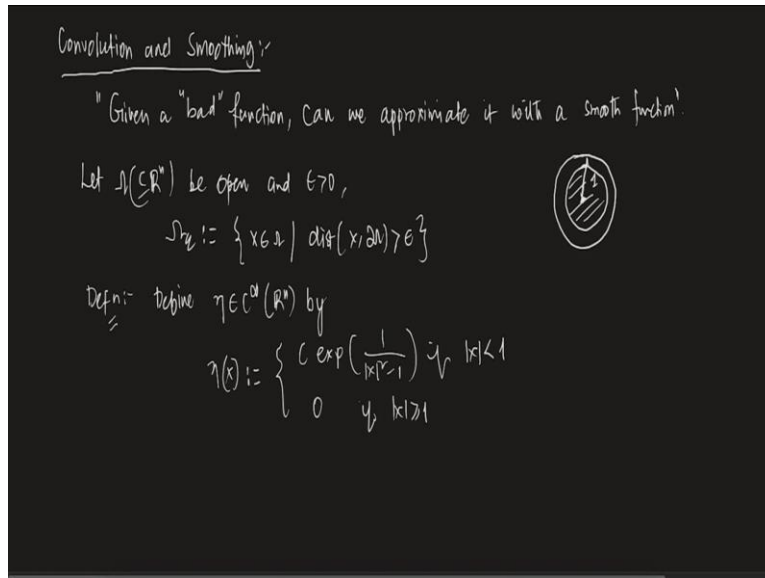 Convolution and Smoothing :-
"Given a "bad" function, Can we approximate it with a smooth function'.
Let Ω(⊆ℝⁿ) be open and ϵ>0,
1
Ω_ϵ := { x∈Ω | dist(x,∂Ω)>ϵ}
Defn:- Define η∈C^∞(ℝⁿ) by
η(x) := { C exp(1/(|x|²-1)) if |x|<1
0 if |x|≥1